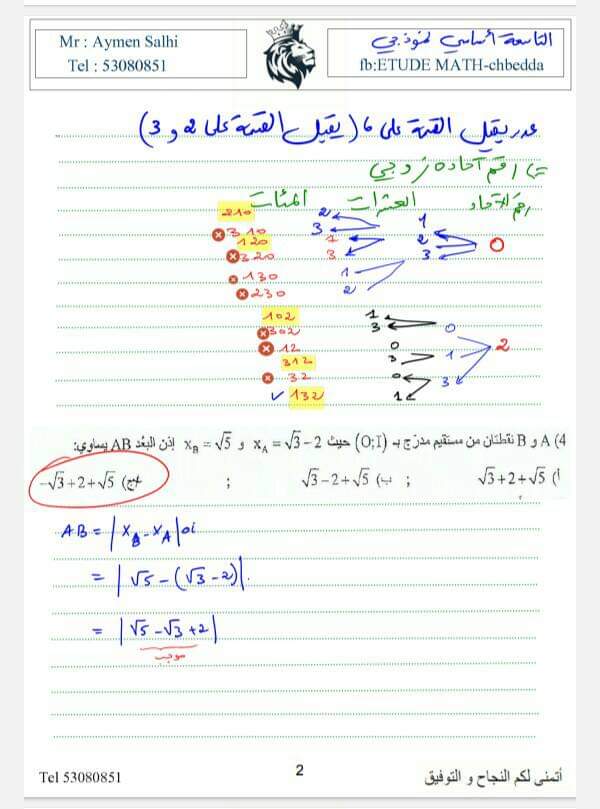 Mr : Aymen Salhi
Tel : 53080851
التاسعة أساسي نموذجي
fb:ETUDE MATH-chbedda
عدد يقبل القسمة على 6 (يقبل القسمة على 2 و 3)
رقم آحاده زوجي
رقم الآحاد العشرات المئات
210
310
120
320
130
230
2
3
1
3
1
2
1
2
3
0
102
302
12
312
32
✓ 132
1
3
0
3
0
1
0
1
3
2
4) A و B نقطتان من مستقيم مدرّج بـ (O;I) حيث xA = √3−2 و xB = √5 إذن البعد AB يساوي:
أ) √3+2+√5 ; ب) √3−2+√5 ; ج) −√3+2+√5
AB = |xB - xA| oi
= |√5 - (√3 - 2)|.
= |√5 - √3 + 2|
موجب
Tel 53080851
2
أتمنى لكم النجاح و التوفيق